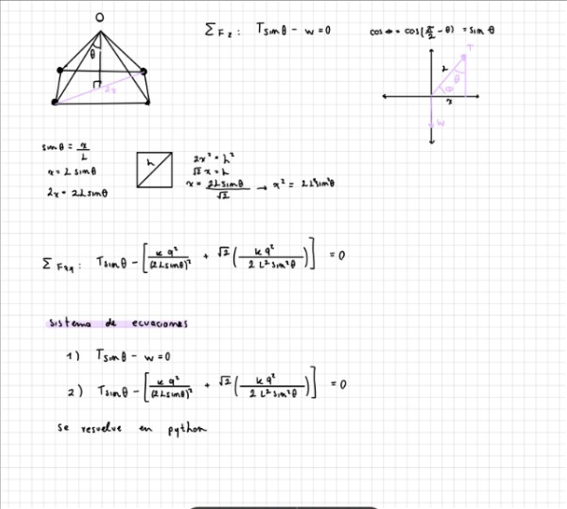 O
θ
2x
Σ Fz: T sin θ - w = 0
cos α = cos(π/2 - θ) = sin θ
T
L
θ
α
x
w
sin θ = x/L
x = L sin θ
2x = 2L sin θ
h
2x² = h²
√2 x = h
x = 2L sin θ/√2 → x² = 2L² sin² θ
Σ Fxy: T sin θ - [k q²/(2L sin θ)² + √2 (k q²/2 L² sin² θ)] = 0
sistema de ecuaciones
1) T sin θ - w = 0
2) T sin θ - [k q²/(2L sin θ)² + √2 (k q²/2 L² sin² θ)] = 0
se resuelve en python